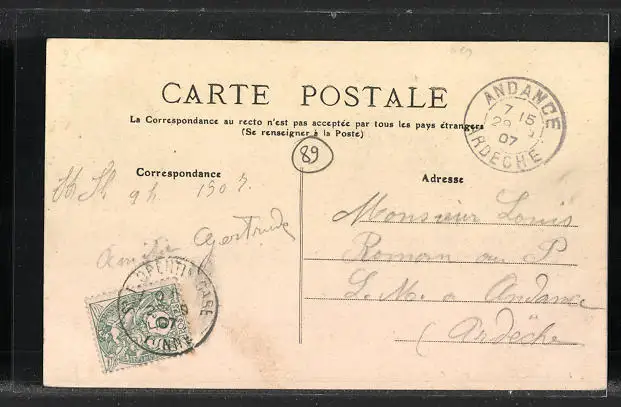 CARTE POSTALE
La Correspondance au recto n'est pas acceptée par tous les pays étrangers
(Se renseigner à la Poste)
ANDANCE
7 15
07
ARDECHE
89
Correspondance
Adresse
9 h 1907.
Amitié Gertrude
Monsieur Louis
Roman au P
L. M. a Andance
(Ardèche
07
YONNE